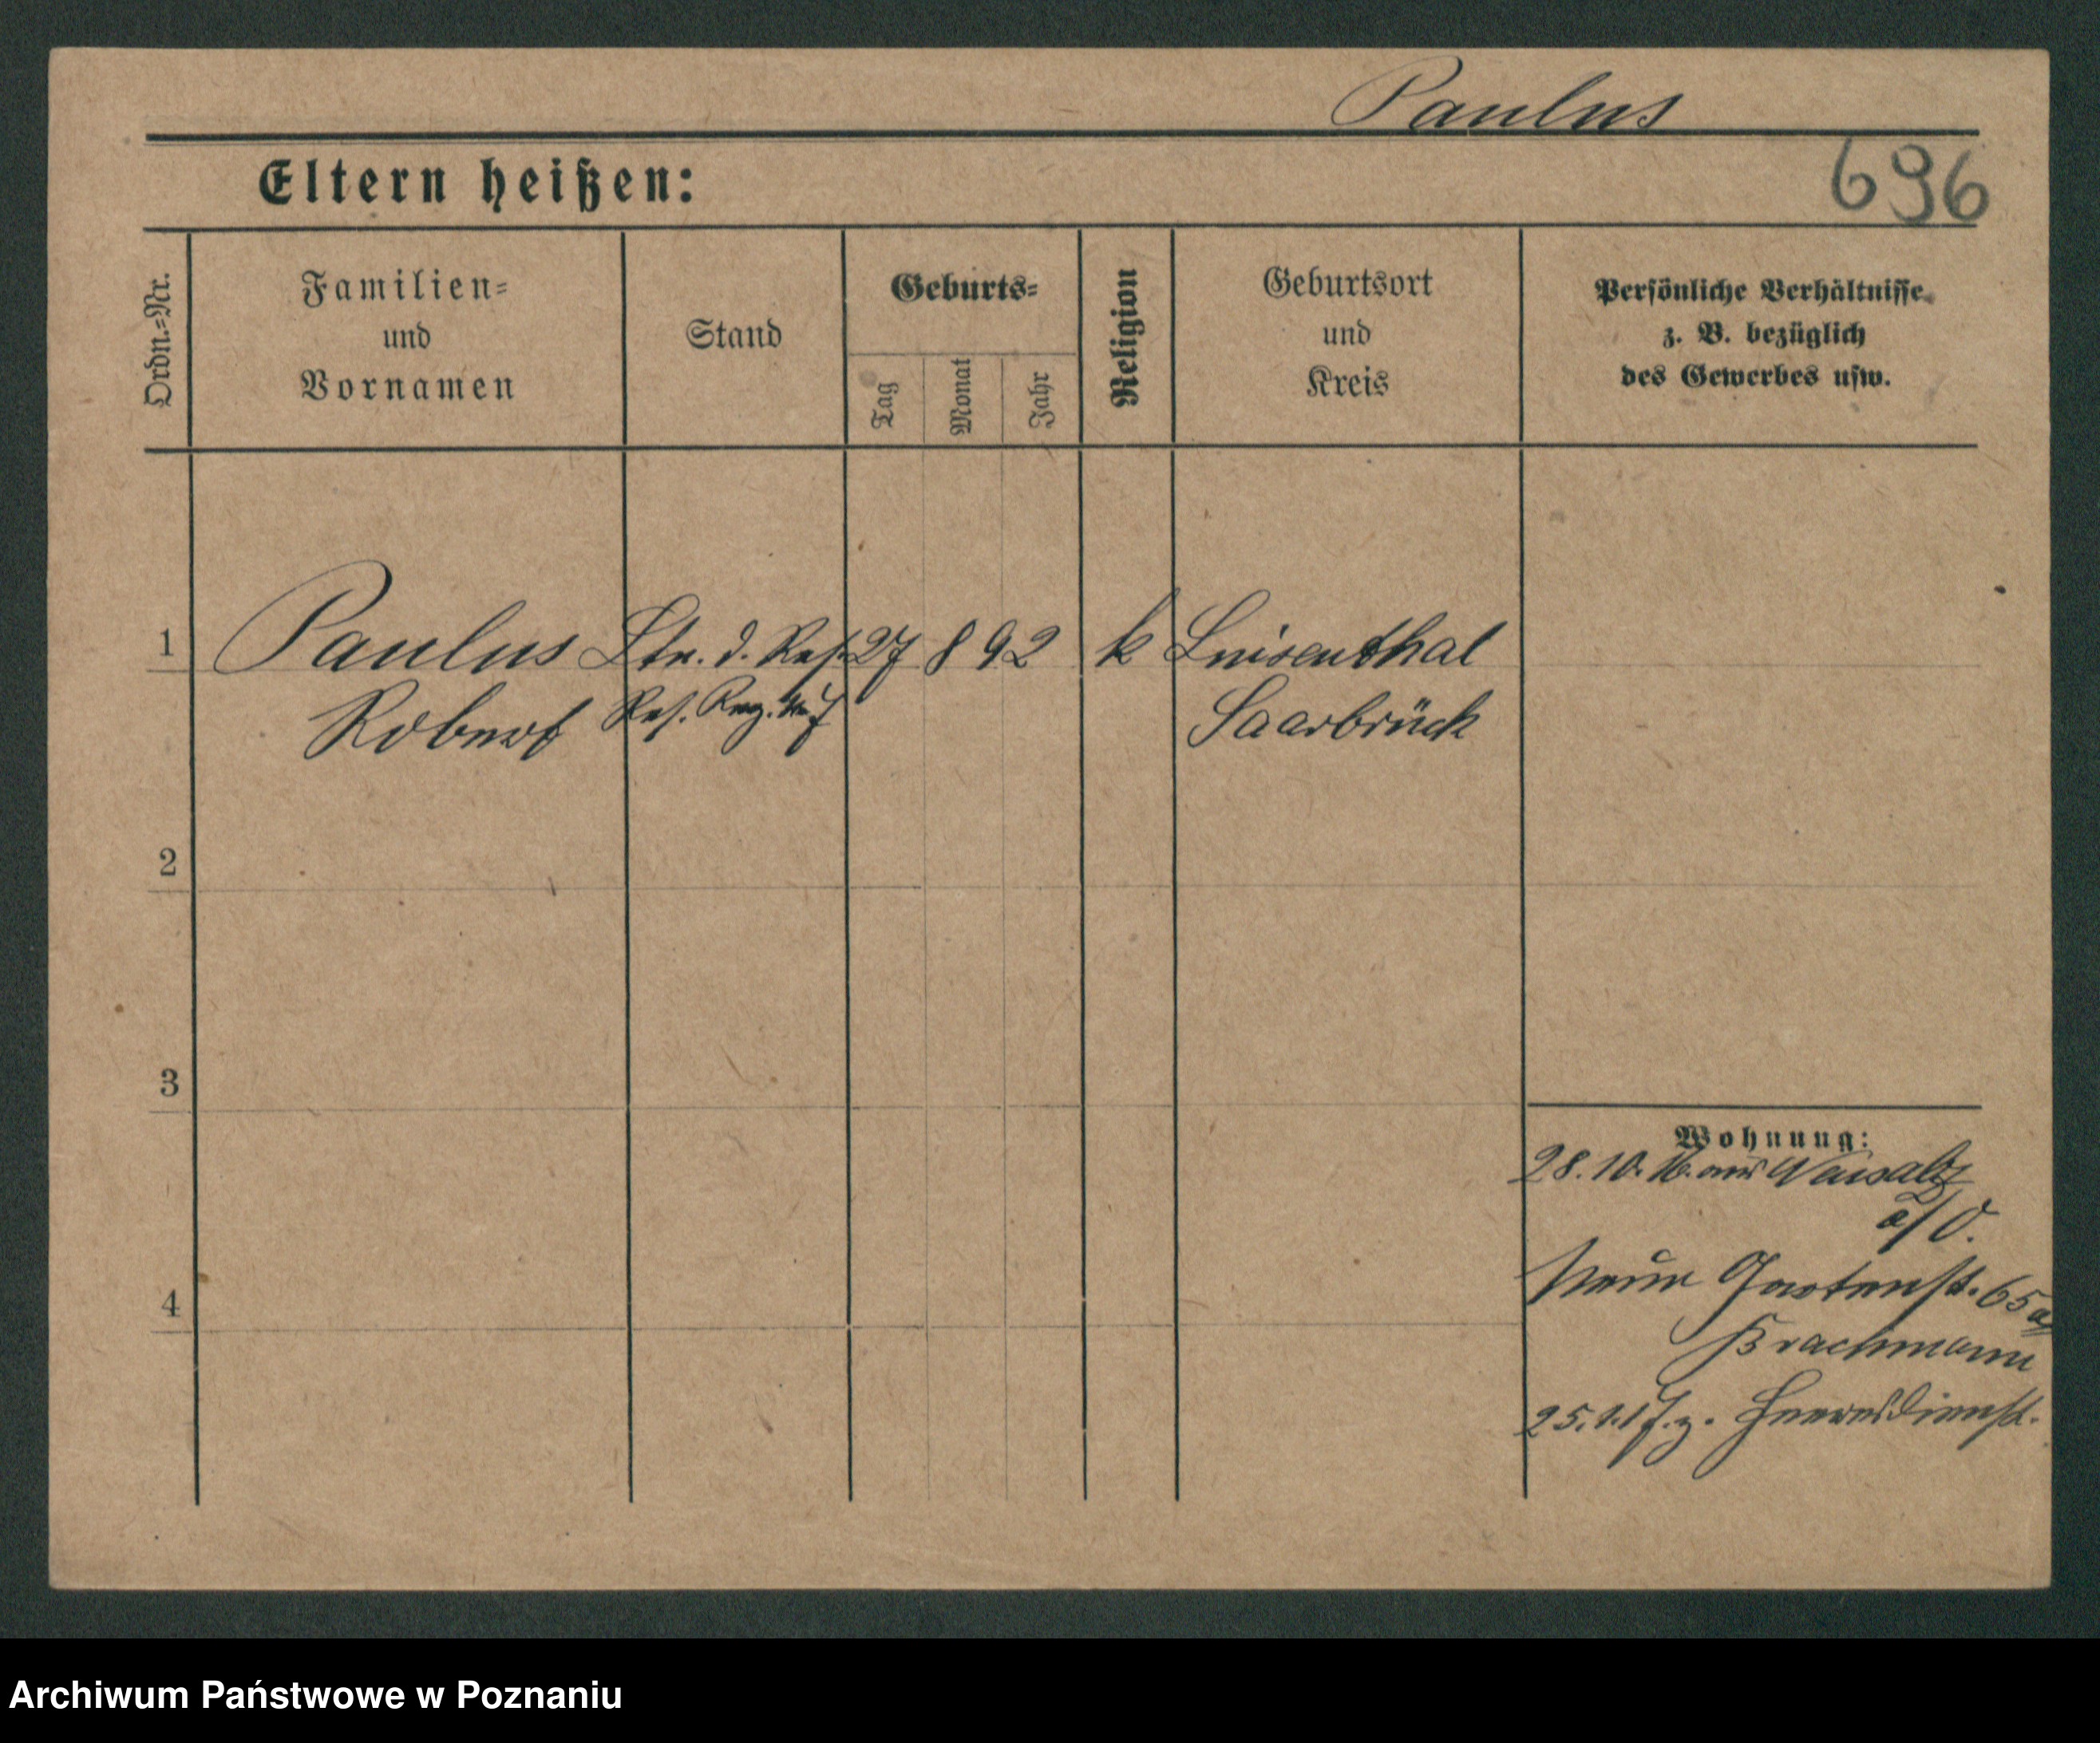 Paulus
696
Eltern heißen:
Ordn.=Nr.
Familien=
und
Vornamen
Stand
Geburts=
Tag
Monat
Jahr
Religion
Geburtsort
und
Kreis
Persönliche Verhältnisse
z. B. bezüglich
des Gewerbes usw.
1
Paulus Ltn. d. Res. 27 8 92 k Luisenthal
Robert Res. Reg.
Saarbrück
2
3
4
Wohnung:
28.10.16. aus
a/O.
Neue Gartenst. 65a
b Brachmann
25.1.17. z. Heeresdienst.
Archiwum Państwowe w Poznaniu